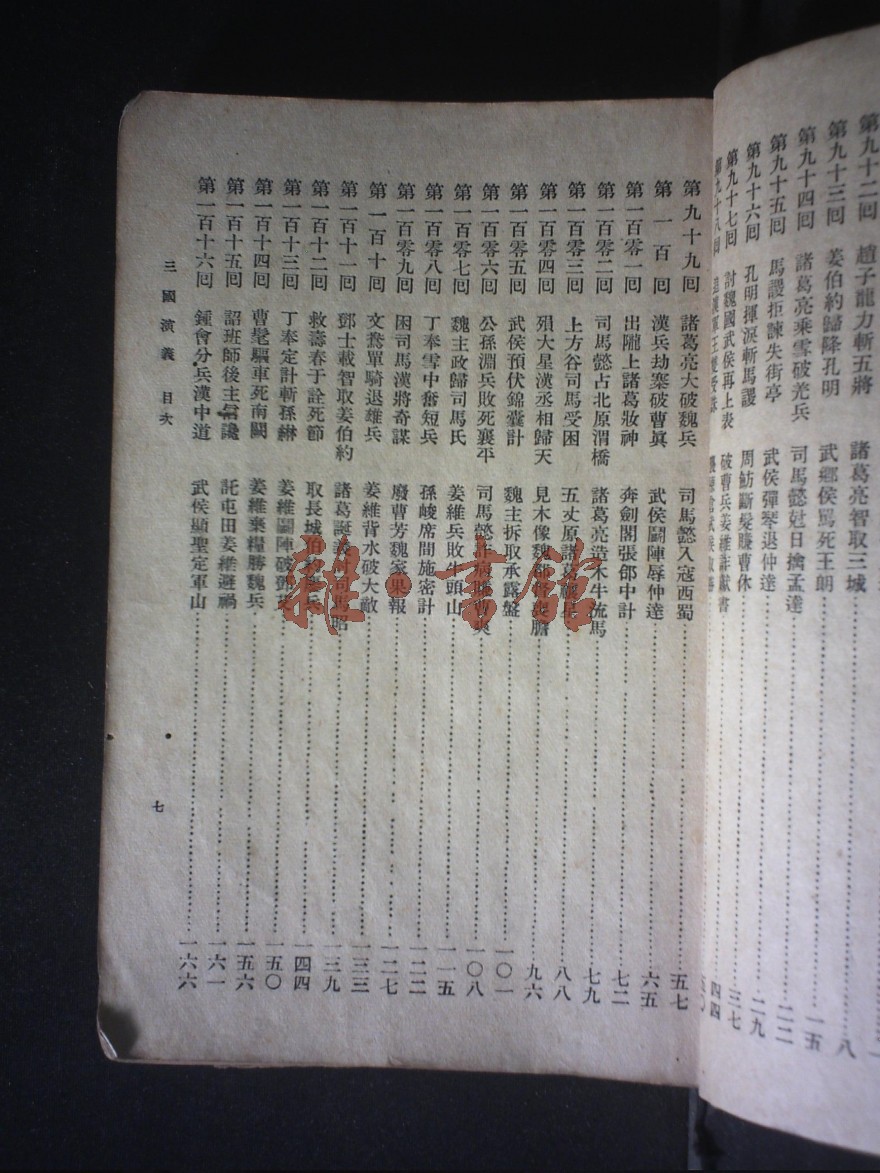 第九十二回 趙子龍力斬五將 諸葛亮智取三城
第九十三回 姜伯約歸降孔明 武鄉侯罵死王朗 八
第九十四回 諸葛亮乘雪破羌兵 司馬懿尅日擒孟達 一五
第九十五回 馬謖拒諫失街亭 武侯彈琴退仲達 二二
第九十六回 孔明揮淚斬馬謖 周魴斷髮賺曹休 二九
第九十七回 討魏國武侯再上表 破曹兵姜維詐獻書 三七
第九十八回 追漢軍王雙受誅 四四
第九十九回 諸葛亮大破魏兵 司馬懿入寇西蜀 五七
第一百回 漢兵劫寨破曹眞 武侯鬭陣辱仲達 六五
第一百零一回 出隴上諸葛妝神 奔劍閣張郃中計 七二
第一百零二回 司馬懿占北原渭橋 諸葛亮造木牛流馬 七九
第一百零三回 上方谷司馬受困 五丈原諸葛禳星 八八
第一百零四回 殞大星漢丞相歸天 見木像魏都督喪膽 九六
第一百零五回 武侯預伏錦囊計 魏主拆取承露盤 一〇一
第一百零六回 公孫淵兵敗死襄平 司馬懿詐病賺曹爽 一〇八
第一百零七回 魏主政歸司馬氏 姜維兵敗牛頭山 一一五
第一百零八回 丁奉雪中奮短兵 孫峻席間施密計 一二二
第一百零九回 困司馬漢將奇謀 廢曹芳魏家果報 一二七
第一百十回 文鴦單騎退雄兵 姜維背水破大敵 一三三
第一百十一回 鄧士載智取姜伯約 諸葛誕義討司馬昭 一三九
第一百十二回 救壽春于詮死節 取長城伯約鏖兵 一四四
第一百十三回 丁奉定計斬孫綝 姜維鬭陣破鄧艾 一五〇
第一百十四回 曹髦驅車死南闕 姜維棄糧勝魏兵 一五六
第一百十五回 詔班師後主信讒 託屯田姜維避禍 一六一
第一百十六回 鍾會分兵漢中道 武侯顯聖定軍山 一六六
三國演義 目次 七
雜·書館